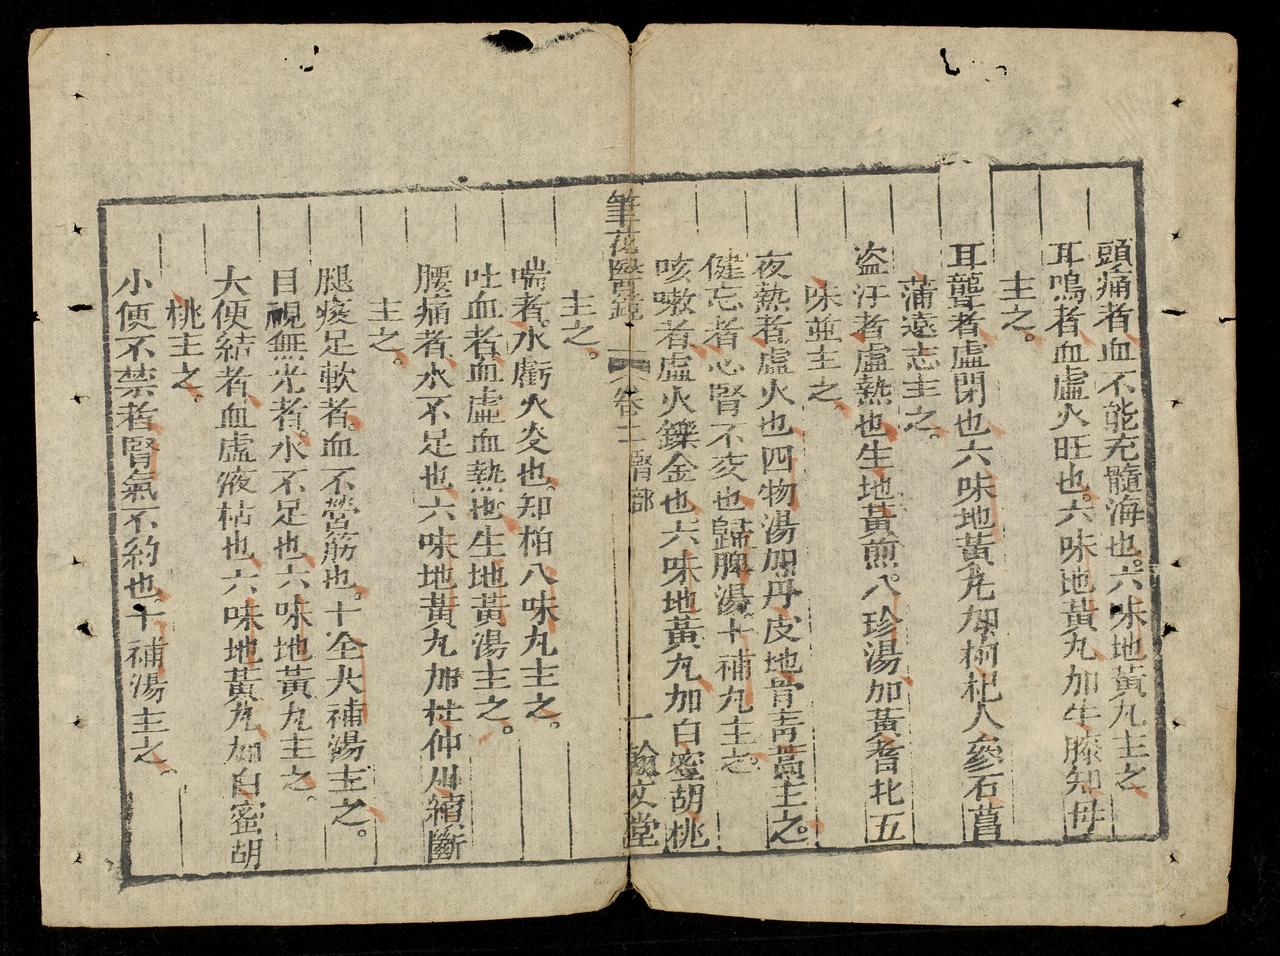 頭痛者血不能充髓海也。六味地黃丸主之
耳鳴者血虛火旺也。六味地黃丸加牛膝知母
主之。
耳聾者虛閉也六味地黃丸加枸杞人參石菖
蒲遠志主之。
盜汗者虛熱也生地黃煎。八珍湯加黃耆北五
味並主之。
夜熱者虛火也四物湯加丹皮地骨青蒿主之。
健忘者心腎不交也歸脾湯。十補丸主之。
咳嗽者虛火鑠金也六味地黃丸加白蜜胡桃
筆花醫鏡 卷二 腎部 一 翰文堂
主之。
喘者。水虧火炎也。知柏八味丸主之。
吐血者血虛血熱也生地黃湯主之。
腰痛者。水不足也六味地黃丸加杜仲川續斷
主之。
腿痠足軟者。血不營筋也。十全大補湯主之。
目視無光者。水不足也六味地黃丸主之。
大便結者血虛液枯也六味地黃丸加白蜜胡
桃主之。
小便不禁者腎氣不約也。十補湯主之。